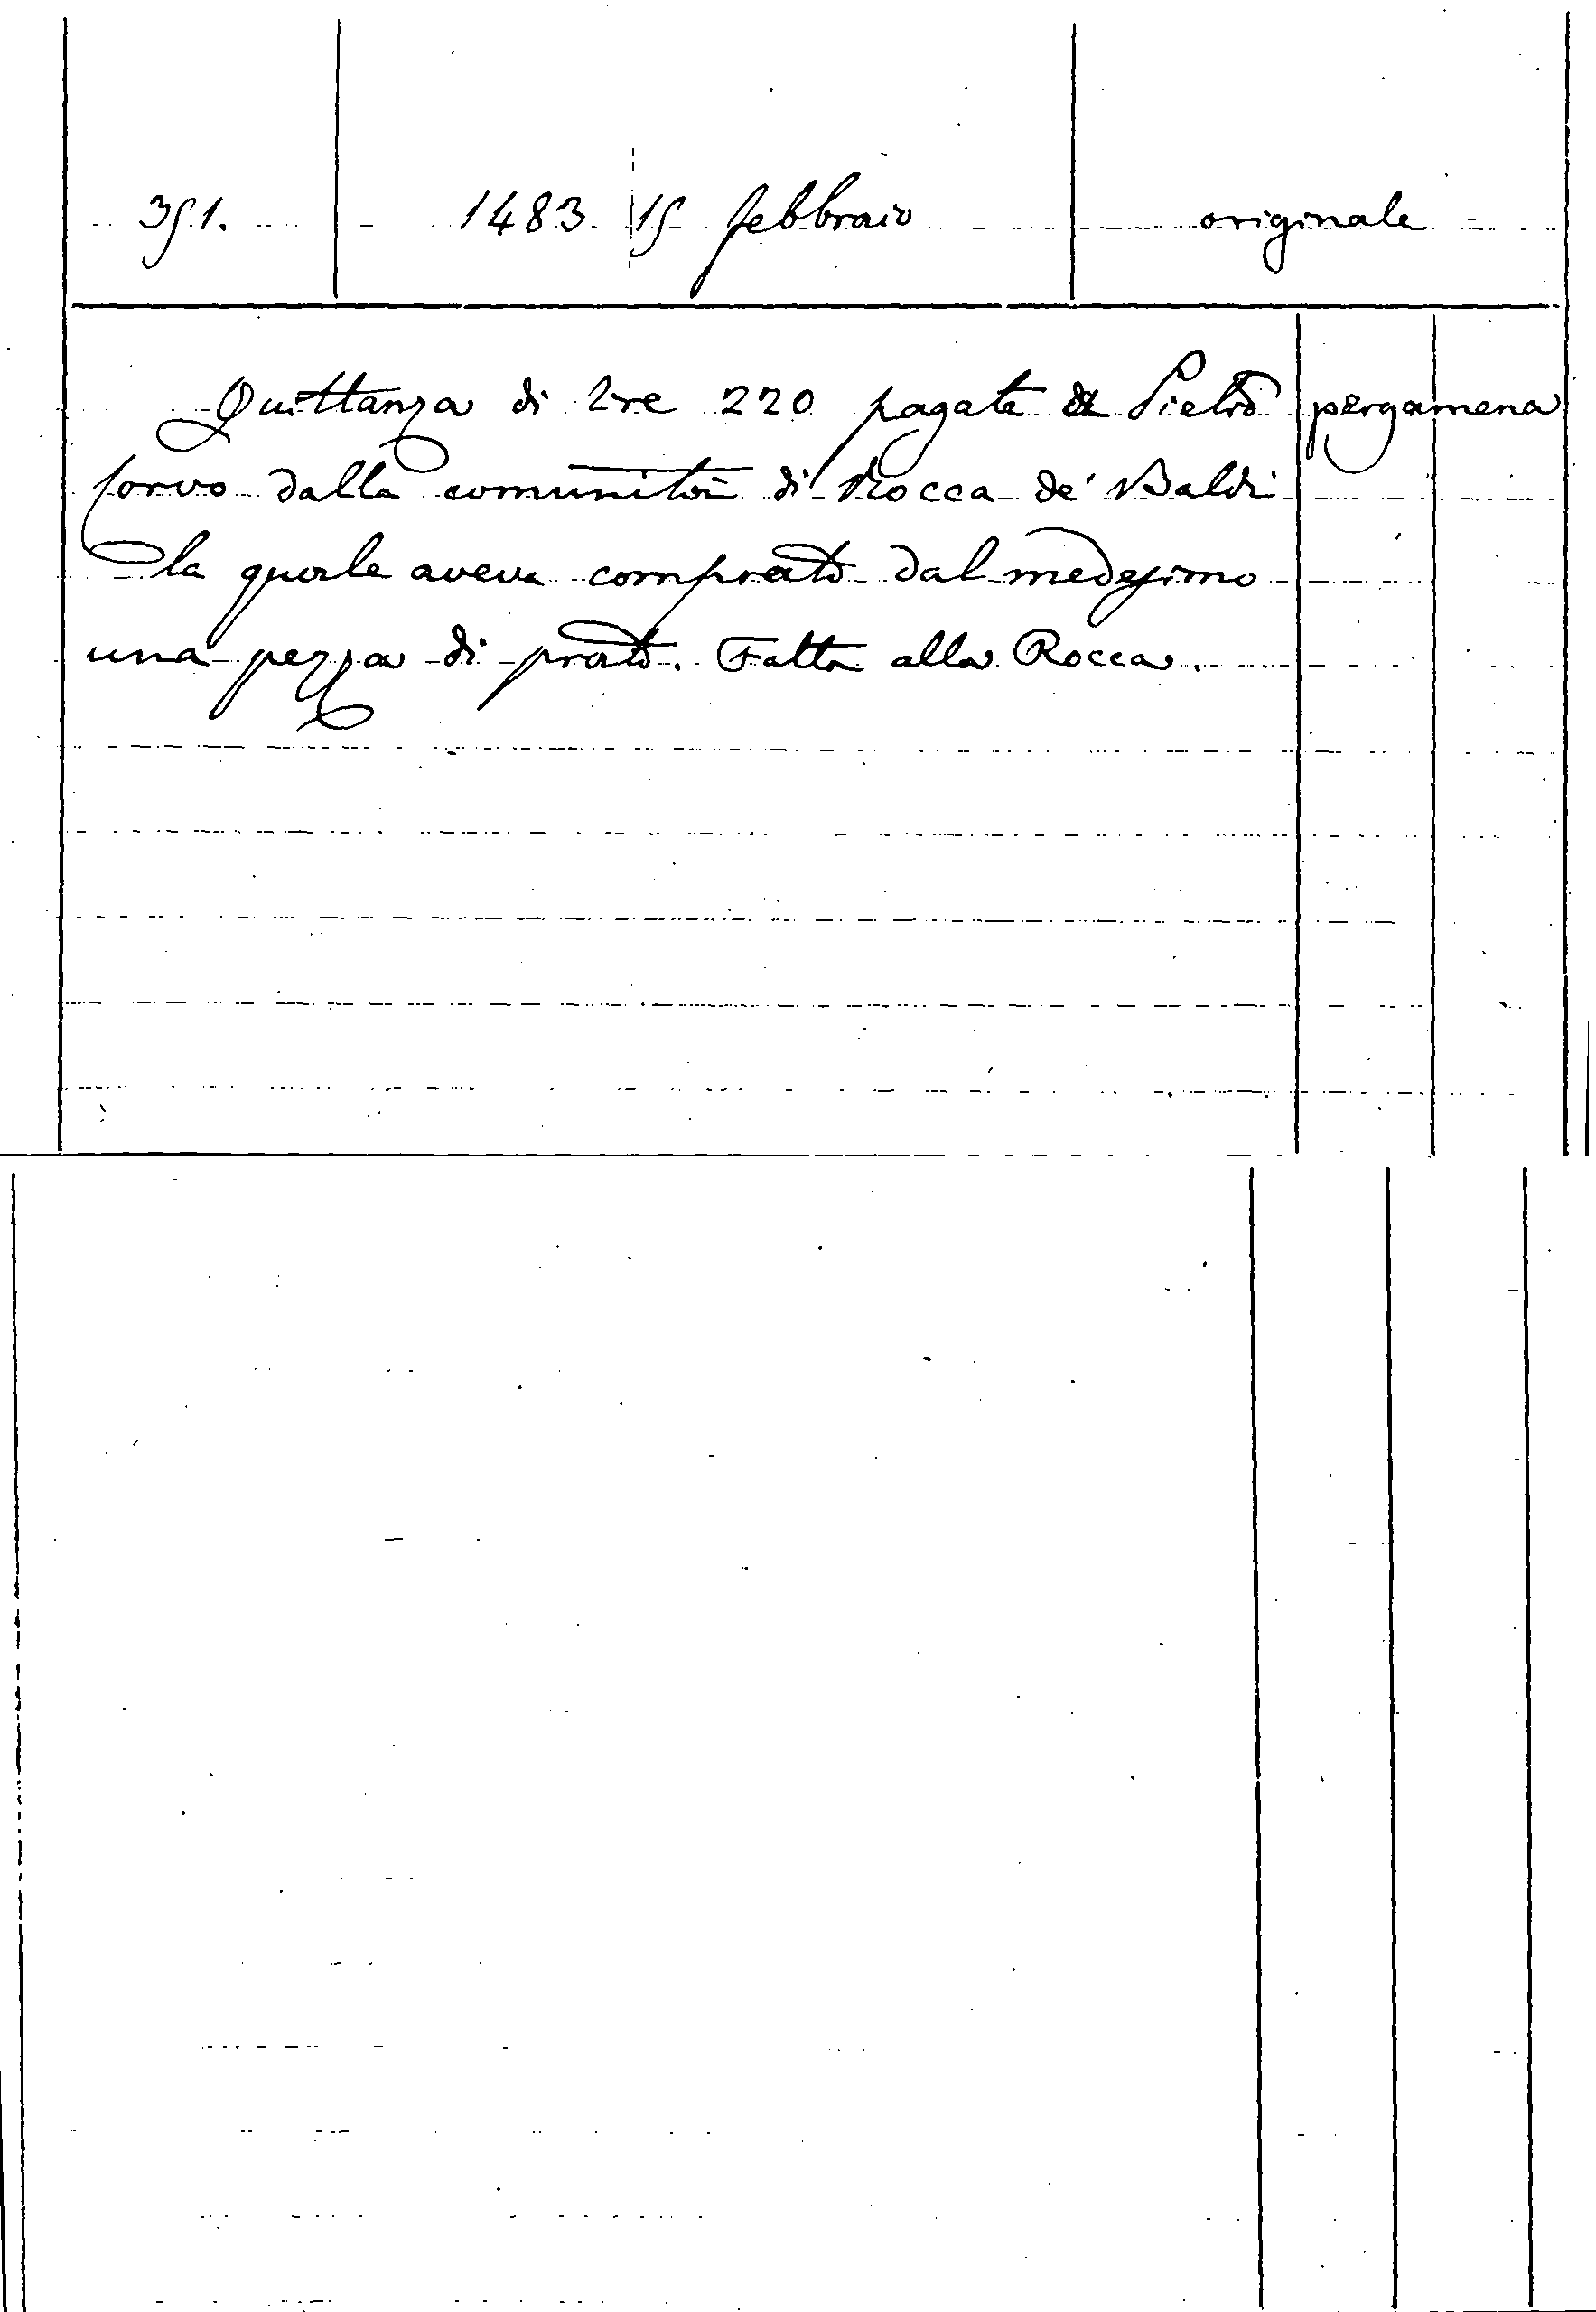 351. 1483 15 febbraio originale
Quittanza di lire 220 pagate a Pietro pergamena
Corvo dalla comunità di Rocca de' Baldi
la quale aveva comprato dal medesimo
una pezza di prato. Fatta alla Rocca.